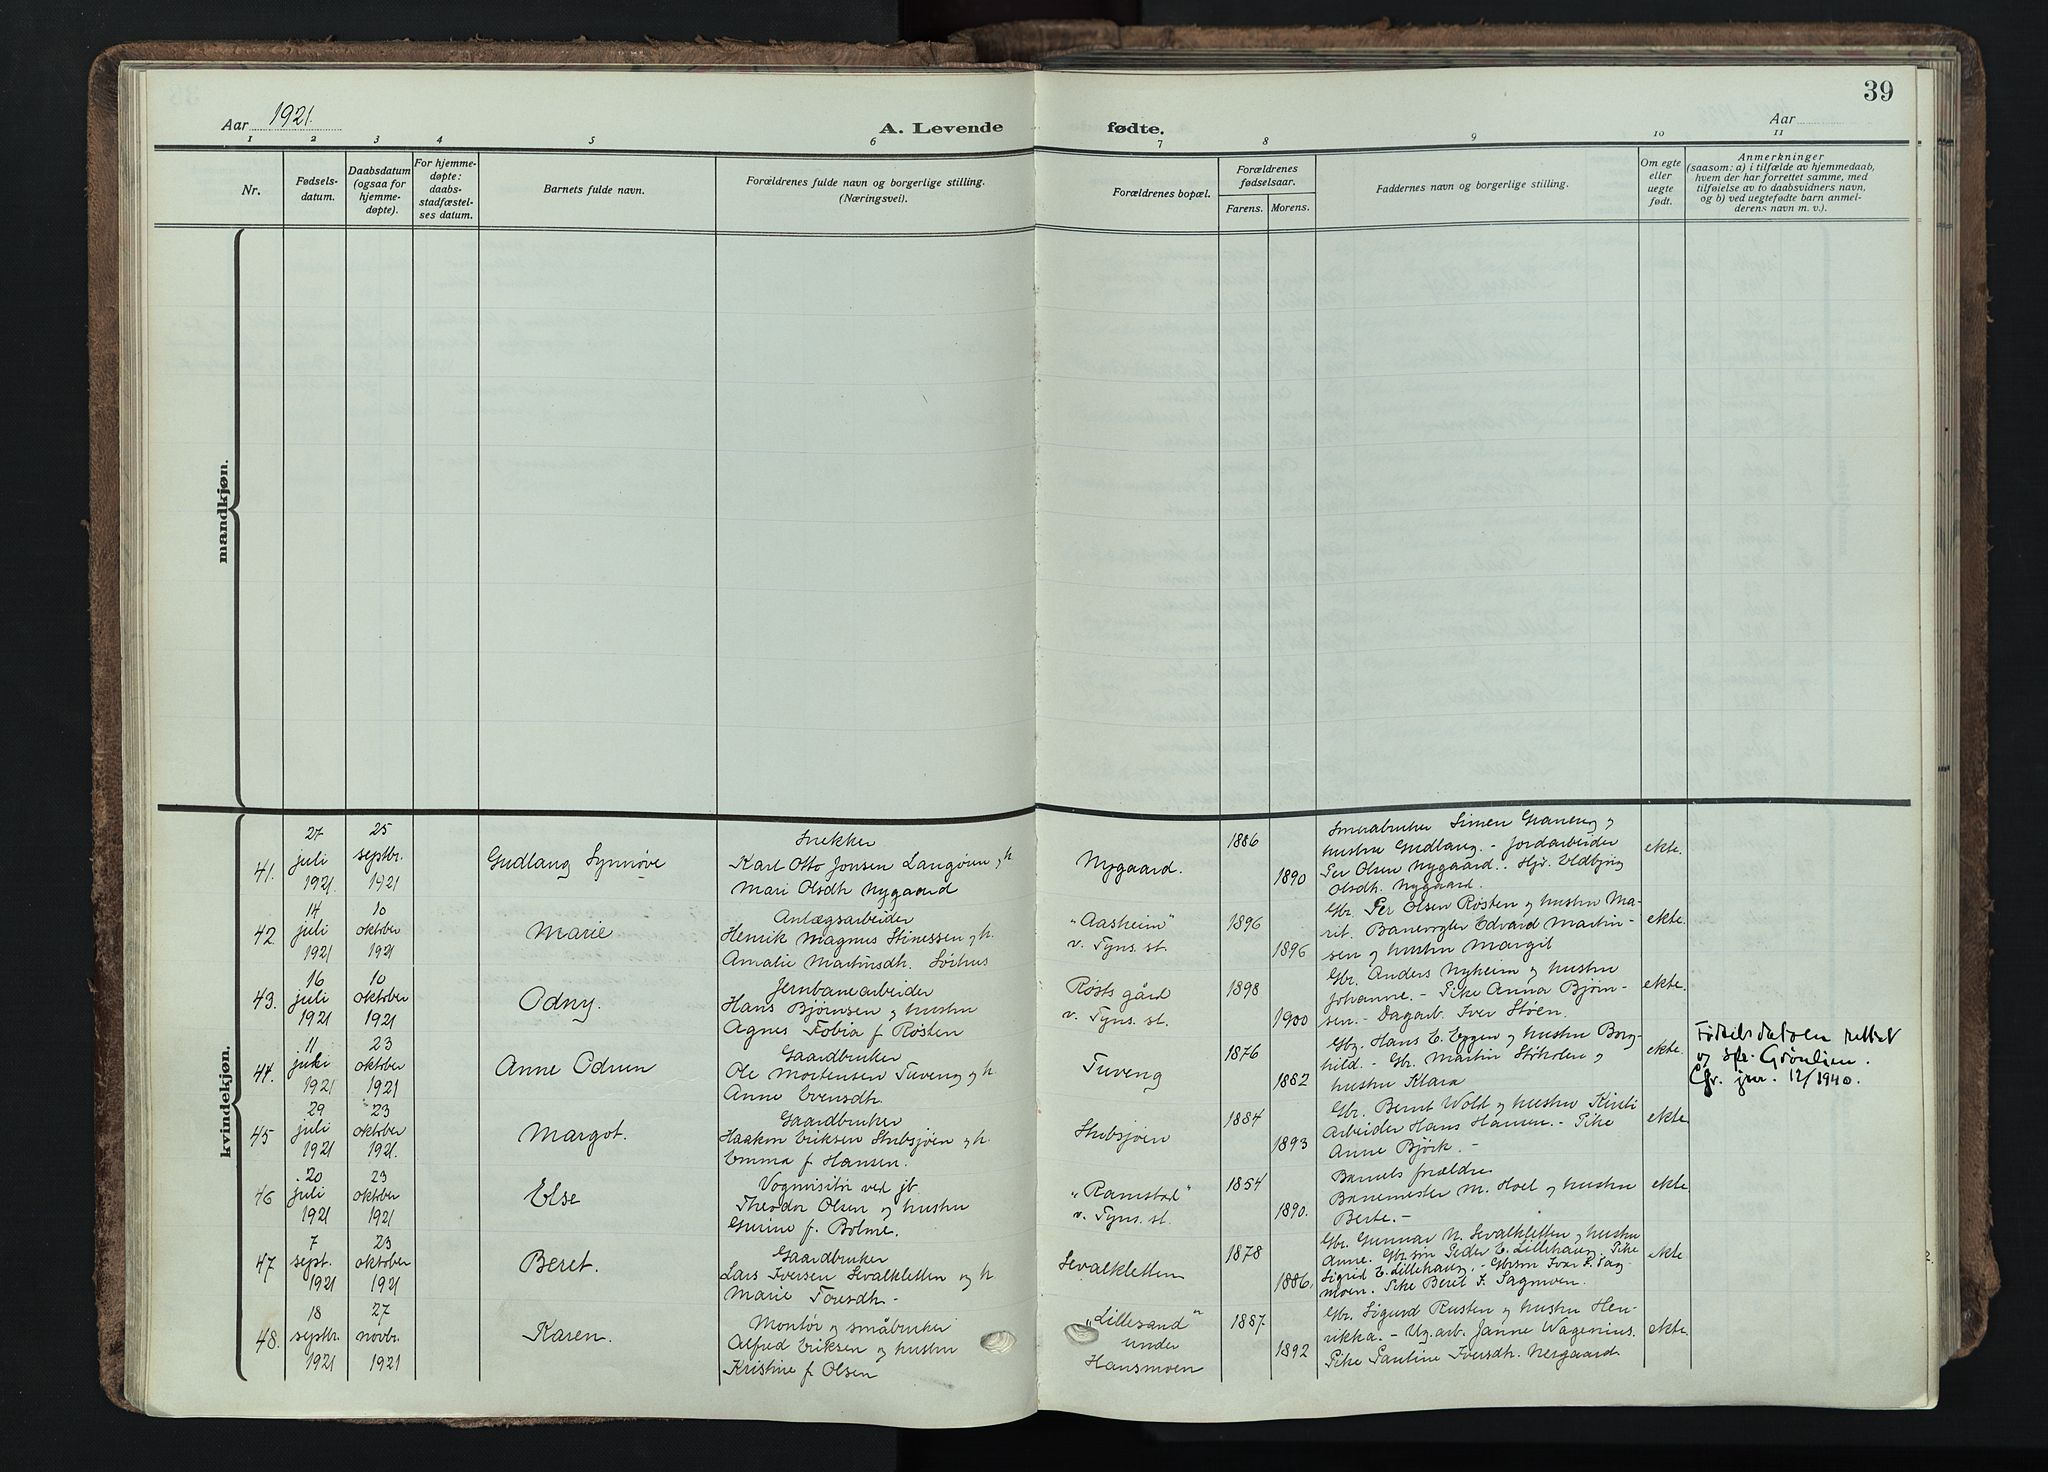 39
Aar 1921.
A. Levende fødte.
Aar
1 2 3 4 5 6 7 8 9 10 11
Nr.
Fødsels-
datum.
Daabsdatum
(ogsaa for
hjemme-
døpte).
For hjemme-
døpte:
daabs-
stadfæstel-
ses datum.
Barnets fulde navn.
Forældrenes fulde navn og borgerlige stilling.
(Næringsvei).
Forældrenes bopæl.
Forældrenes
fødselsaar.
Farens. Morens.
Faddernes navn og borgerlige stilling.
Om egte
eller
uegte
født.
Anmerkninger
(saasom: a) i tilfælde av hjemmedaab,
hvem der har forrettet samme, med
tilføielse av to daabsvidners navn,
og b) ved uegtefødte barn anmel-
derens navn m. v.).
mandkjøn.
kvindekjøn.
41.
27
juli
1921.
25
septbr.
1921
Gudlaug Synnøve
Snekker
Karl Otto Jonsen Langøien og h
Mari Olsdtr Nygaard
Nygaard.
1886
1890
Smaabruker Simen Graneng og
hustru Gudlaug. - Jordarbeider
Per Olsen Nygaard. Hjv. Eldbjørg
Olsdtr. Nygaard.
ekte.
42.
14
juli
1921
10
oktober
1921
Marie
Anlægsarbeider
Henrik Magnus Stinessen og h.
Amalie Martinsdtr. Svihus
"Aasheim"
v. Tyns. st.
1896
1896
Gbr. Per Olsen Røsten og hustru Ma-
rit. Banevogter Edvard Martin-
sen og hustru Margit
ekte.
43.
16
juli
1921
10
oktober
1921
Odny.
Jernbanearbeider
Hans Bjørnsen og hustru
Agnes Tobia f. Røsten
Røsts gård
v. Tyns. st.
1898
1900
Gbr. Anders Nyheim og hustru
Johanne. - Pike Anna Bjørn-
sen. - Dagarb. Iver Støen.
ekte.
44.
11
juli
1921
23
oktober
1921
Anne Odrun
Gaardbruker
Ole Mortensen Tuveng og h.
Anne Evensdtr.
Tuveng
1876
1882
Gbr. Hans E. Eggen og hustru Borg-
hild. - Gbr. Martin Støholen og
hustru Klara
ekte.
Fødselsdatoen rettet
og spr. Grønlien.
Cfr. jnr. 12/1940.
45
29
juli
1921
23
oktober
1921.
Margot.
Gaardbruker
Haakon Eriksen Stubsjøen og h.
Emma f. Hansen.
Stubsjøen
1884
1893
Gbr. Bernt Wold og hustru Kirsti
Arbeider Hans Hansen. - Pike
Anne Bjørk. -
ekte
46
20
juli
1921
23
oktober
1921
Else
Vognvisitør ved jb.
Theodor Olsen og hustru
Gurine f. Bolme.
"Ramstad"
v. Tyns. st.
1884
1890.
Barnets forældre
Banemester M. Hoel og hustru
Berte. -
ekte
47
7
sept.
1921
23
oktober
1921
Beret.
Gaardbruker
Lars Iversen Sevalkletten og h.
Marie Toresdtr. -
Sevalkletten
1878
1886.
Gbr. Gunnar N. Sevalkletten og hustru
Anne. Gbr.søn Peder E. Lillehaug. Pike
Sigrid E. Lillehaug. - Gbrsøn Ivar P. Sag-
moen. Pike Beret P. Sagmoen.
ekte
48.
18
septbr.
1921
27
novbr.
1921
Karen.
Montør og småbruker
Alfred Eriksen og hustru
Kristine f. Olsen
"Lillesand"
under
Hansmoen
1887
1892
Gbr. Sigurd Rusten og hustru Hen-
rikka. - Ug.arb. Janne Wagenius.
Pike Pauline Iversdtr. Nergaard.
ekte.